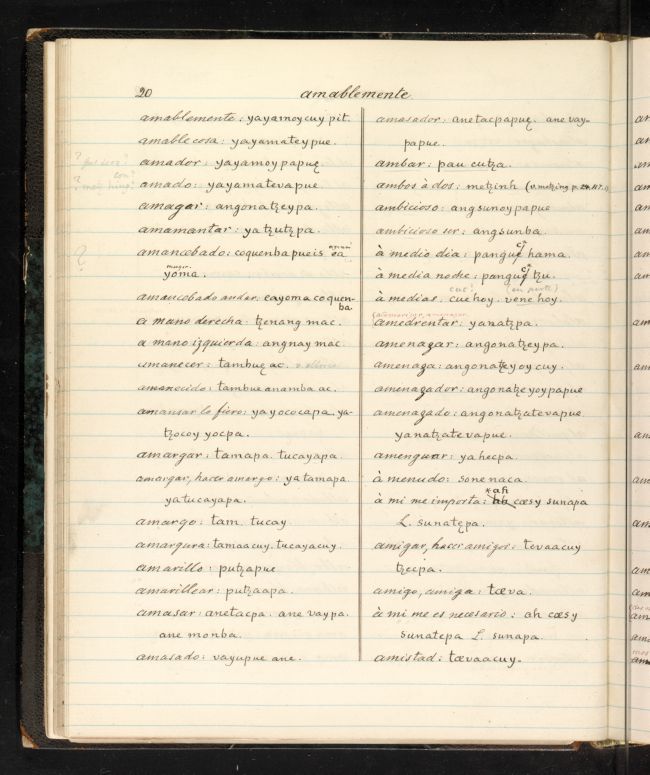 20
amablemente.
amablemente: yayamoycuy pit.
amable cosa: yayamateypue.
amador: yayamoypapuę
amado: yayamatevapue
amagar: angonatzeypa.
amamantar: yatzutzpa.
amancebado: coquenbapueis
muger
yoma.
amancebado andar. eayoma coquen-
ba.
a mano derecha: tzenang mac.
a mano izquierda: angnay mac
amanecer: tambuę ac.
amanecido: tambue anamba ac.
amansar lo fiero: yayococapa. ya-
tzocoy yocpa.
amargar: tamapa. tucayapa.
amargar, hacer amargo: yatamapa
yatucayapa.
amargo: tam. tucay
amargura: tamaacuy. tucayacuy.
amarillo: putzapue
amarillear: putzaapa.
amasar: anetacpa. ane vaypa.
ane monba.
amasado: vayupue ane.
amasador: anetacpapuę. ane vay-
papue.
ambar: pau cutza.
ambos à dos: metzinh (v. metzing p.
ambicioso: angsunoypapue
ambicioso ser: angsunba.
à medio dia: panguc hama.
à media noche: panguc tzu.
cuc? (en parte)
à medias. cuehoy. vene hoy.
amedrentar: yanatzpa.
amenazar: angonatzeypa.
amenaza: angonatzeyoycuy.
amenazador: angonatzeyoypapue
amenazado: angonatzatevapue
yanatzatevapue.
amenguar: yahecpa.
à menudo: sone naca.
ah
à mi me importa: cœsy sunapa
L. sunatępa.
amigar, hacer amigos: tovaacuy
tzecpa.
amigo, amiga: tœva.
à mi me es necesario: ah cœsy
sunatepa L. sunapa.
amistad: tœvaacuy.